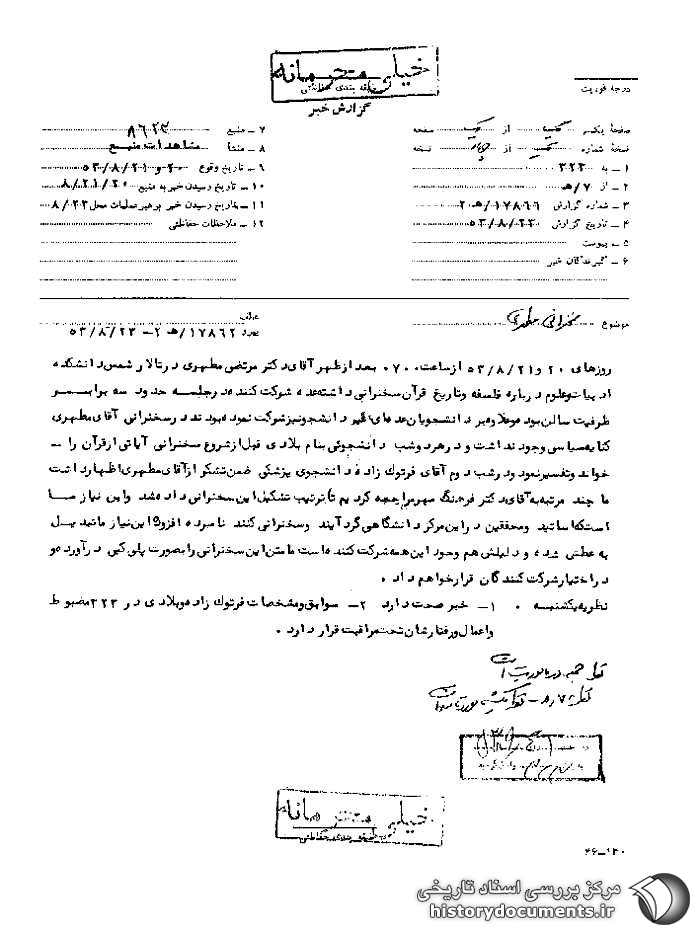 خیلی محرمانه
طبقه بندی حفاظتی
گزارش خبر
درجه فوریت
صفحه یکم از یک صفحه
نسخه شماره یک از چهار نسخه
۱ - به ۳۲۳
۲ - از ۷/ه
۳ - شماره گزارش ۱۷۸۶۶/ه ۲
۴ - تاریخ گزارش ۵۳/۸/۲۳
۵ - پیوست
۶ - گیرندگان خبر
۷ - منبع ۸۶۲۳
۸ - منشأ مشاهدات منبع
۹ - تاریخ وقوع ۲۰ و ۵۳/۸/۲۱
۱۰ - تاریخ رسیدن خبر به منبع ۸/۲۱/۲۰
۱۱ - تاریخ رسیدن خبر برهبر عملیات محل ۸/۲۳
۱۲ - ملاحظات حفاظتی
موضوع سخنرانی مطهری
عطف
پیرو ۱۷۸۶۲/ه ۲ - ۵۳/۸/۲۳
روزهای ۲۰ و ۵۳/۸/۲۱ از ساعت ۰۷۰ بعد از ظهر آقای دکتر مرتضی مطهری در تالار شمس دانشکده
ادبیات و علوم درباره فلسفه و تاریخ قرآن سخنرانی داشته عده شرکت کننده در جلسه حدود سه برابر
ظرفیت سالن بود و علاوه بر دانشجویان عده‌ای غیر دانشجو نیز شرکت نموده بودند در سخنرانی آقای مطهری
کنایه سیاسی وجود نداشت و در هر دو شب دانشجوئی بنام بلادی قبل از شروع سخنرانی آیاتی از قرآن را -
خواند و تفسیر نمود و در شب دوم آقای فرتوک زاده دانشجوی پزشکی ضمن تشکر از آقای مطهری اظهار داشت
ما چند مرتبه به آقای دکتر فرهنگ مهر مراجعه کردیم تا ترتیب تشکیل این سخنرانی داده شد و این نیاز ما
است که اساتید و محققین در این مرکز دانشگاهی گرد آیند و سخنرانی کنند نامبرده افزود این نیاز ما تبدیل
به عطش شده و دلیلش هم وجود این همه شرکت کننده است ما متن این سخنرانی را بصورت پلی کپی درآورده و
در اختیار شرکت کنندگان قرار خواهیم داد .
نظریه یکشنبه . ۱ - خبر صحت دارد ۲ - سوابق و مشخصات فرتوک زاده و بلادی در ۳۲۳ مضبوط
و اعمال و رفتارشان تحت مراقبت قرار دارد .
خیلی محرمانه
طبقه بندی حفاظتی
۴۶-۱۳۰
مرکز بررسی اسناد تاریخی
historydocuments.ir